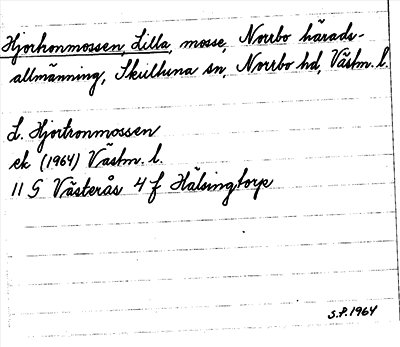 Hjortronmossen, Lilla, mosse, Norrbo härads-
allmänning, Skultuna sn, Norrbo hd, Västm. l.
L. Hjortronmossen
ek (1964) Västm. l.
11 G Västerås 4 f Hälsingtorp
S.P. 1964